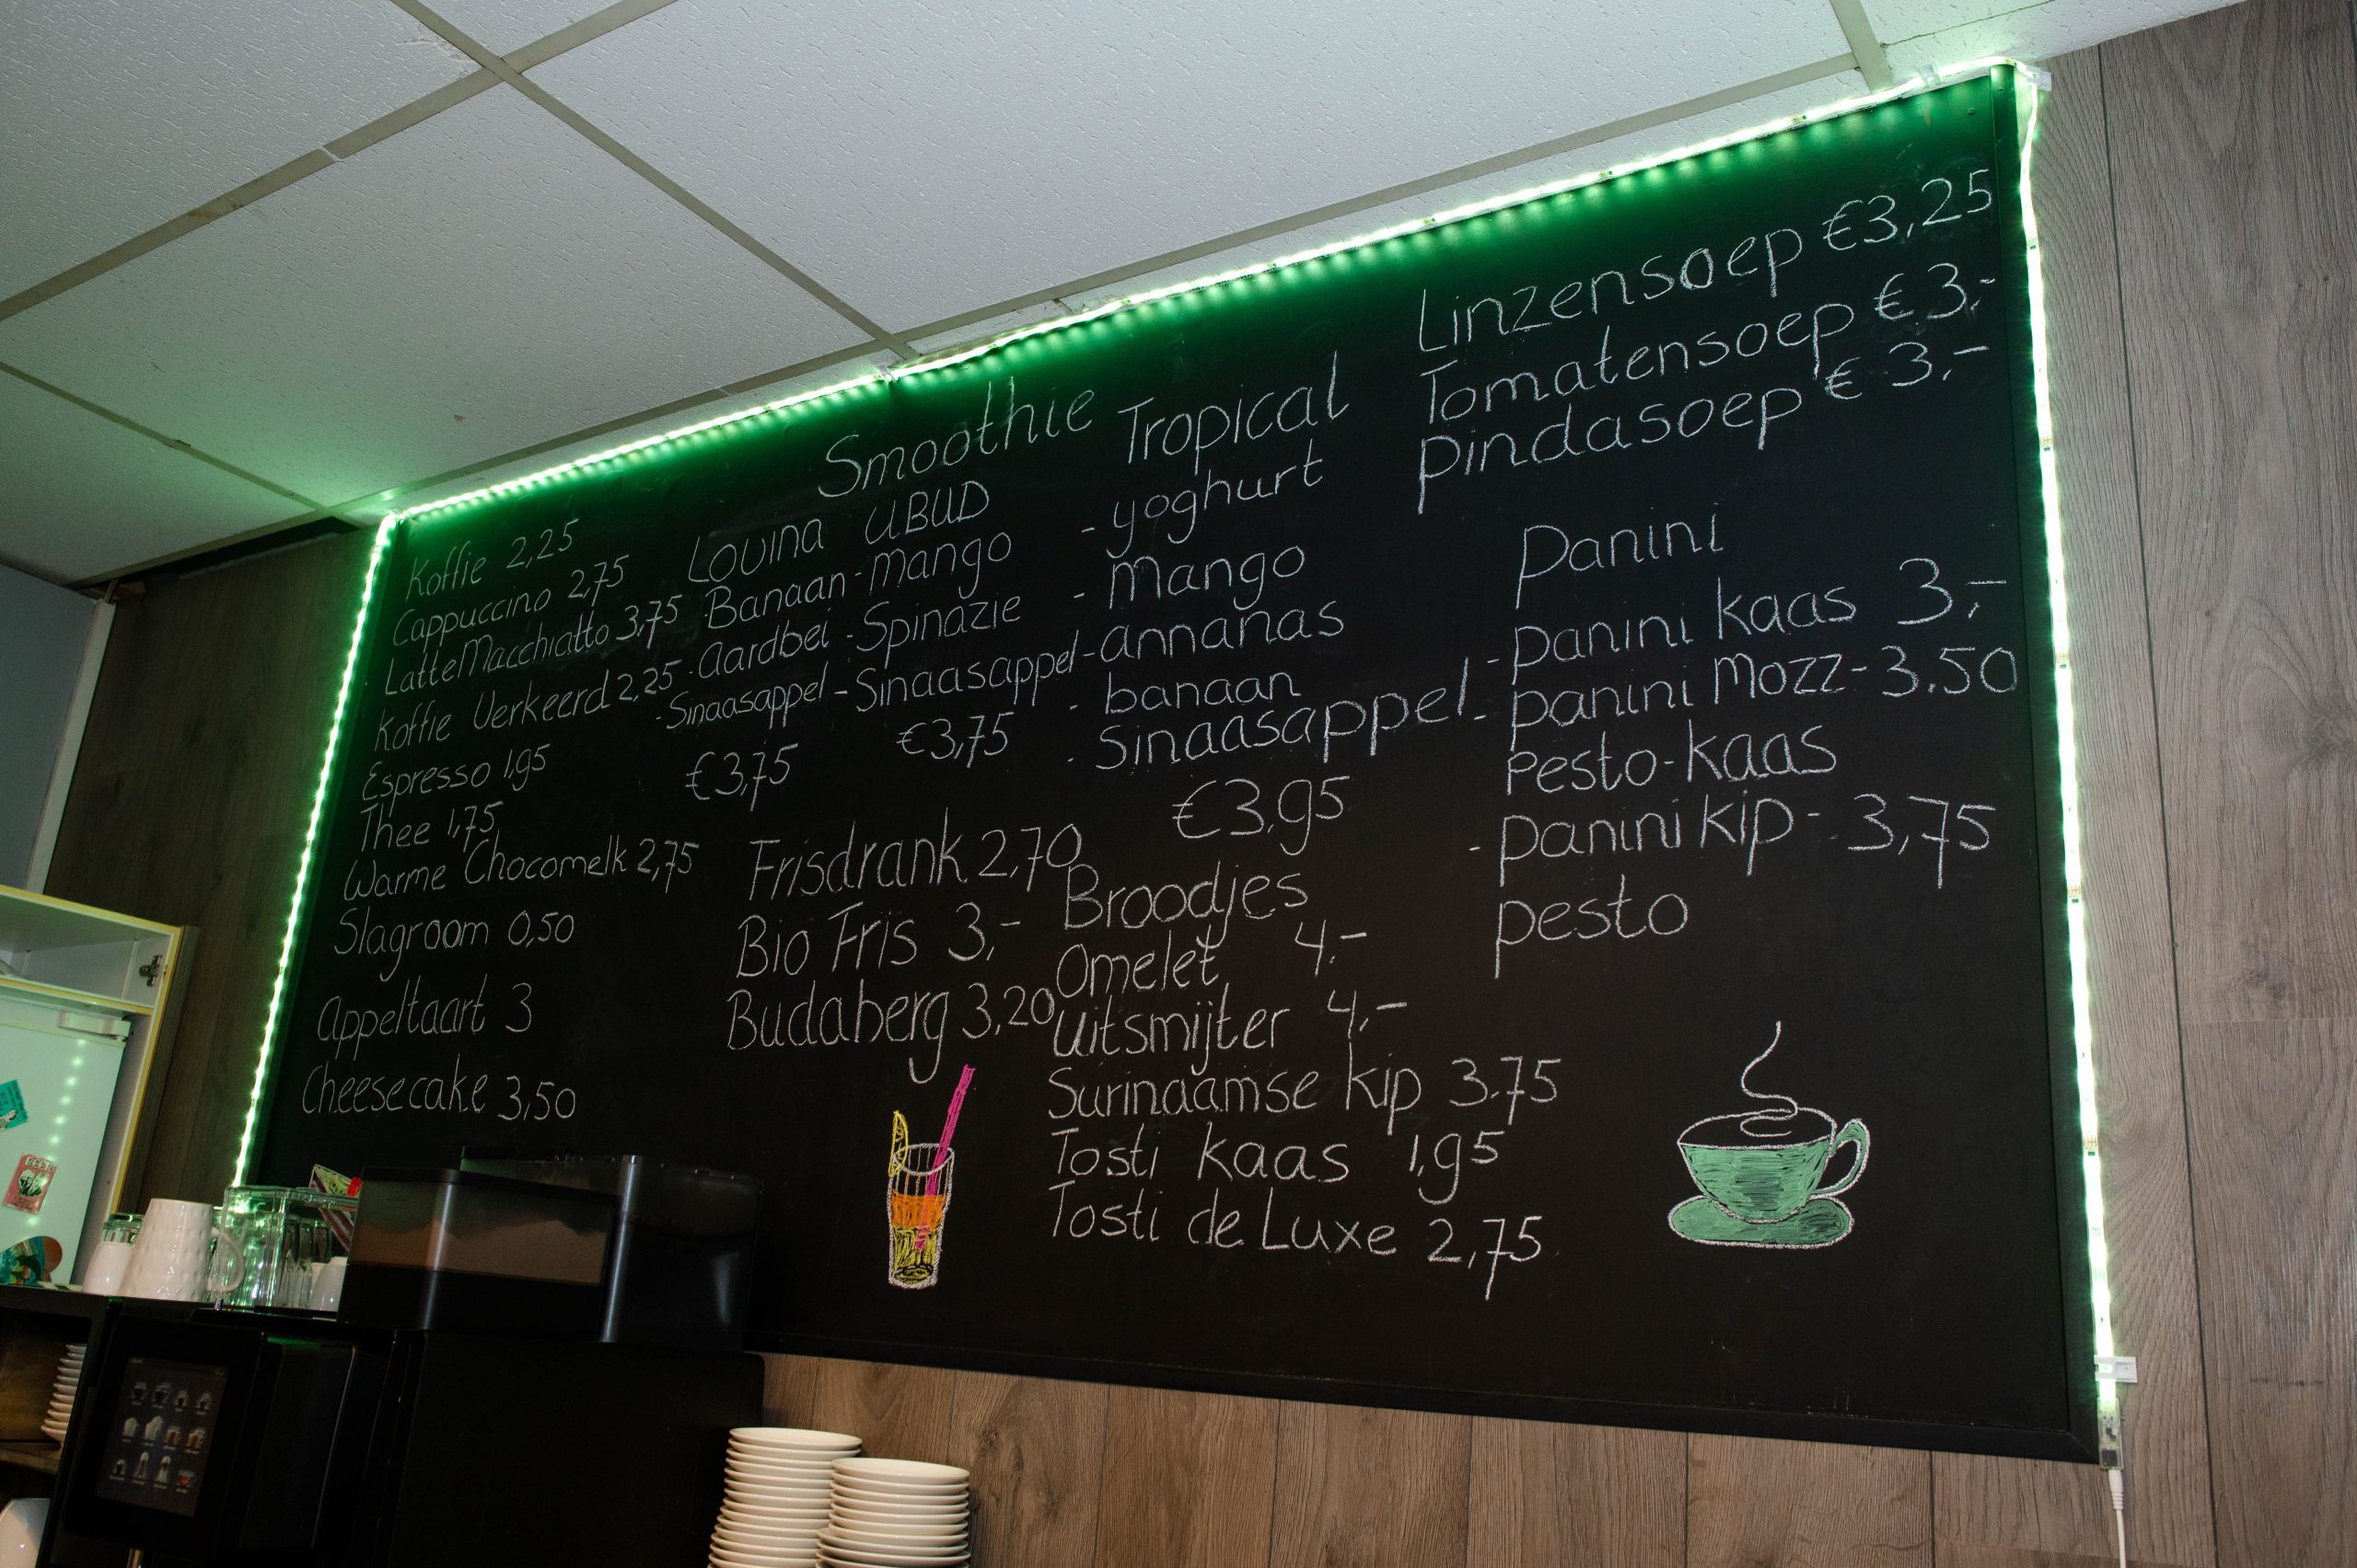 Koffie 2,25
Cappuccino 2,75
Latte Macchiatto 3,75
Koffie Verkeerd 2,25
Espresso 1,95
Thee 1,75
Warme Chocomelk 2,75
Slagroom 0,50
Appeltaart 3
Cheesecake 3,50
Smoothie
Lovina
Banaan
- Aardbei
- Sinaasappel
€3,75
UBUD
- Mango
- Spinazie
- Sinaasappel
€3,75
Tropical
- yoghurt
- Mango
- annanas
- banaan
- Sinaasappel
€3,95
Frisdrank 2,70
Bio Fris 3,-
Budaberg 3,20
Broodjes
Omelet 4,-
Uitsmijter 4,-
Surinaamse kip 3.75
Tosti kaas 1,95
Tosti de Luxe 2,75
Linzensoep €3,25
Tomatensoep €3,-
Pindasoep € 3,-
Panini
- Panini kaas 3,-
- Panini Mozz- 3.50
Pesto-kaas
- Panini kip - 3,75
pesto